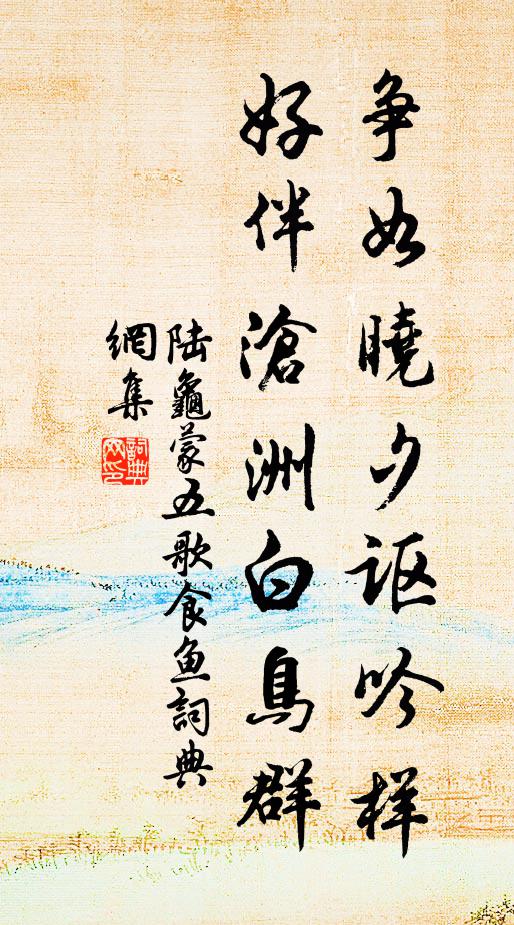 争如曉夕讴吟样
好伴滄洲白鳥群
陆龜蒙五歌食鱼詞典
網集
詞典
网印